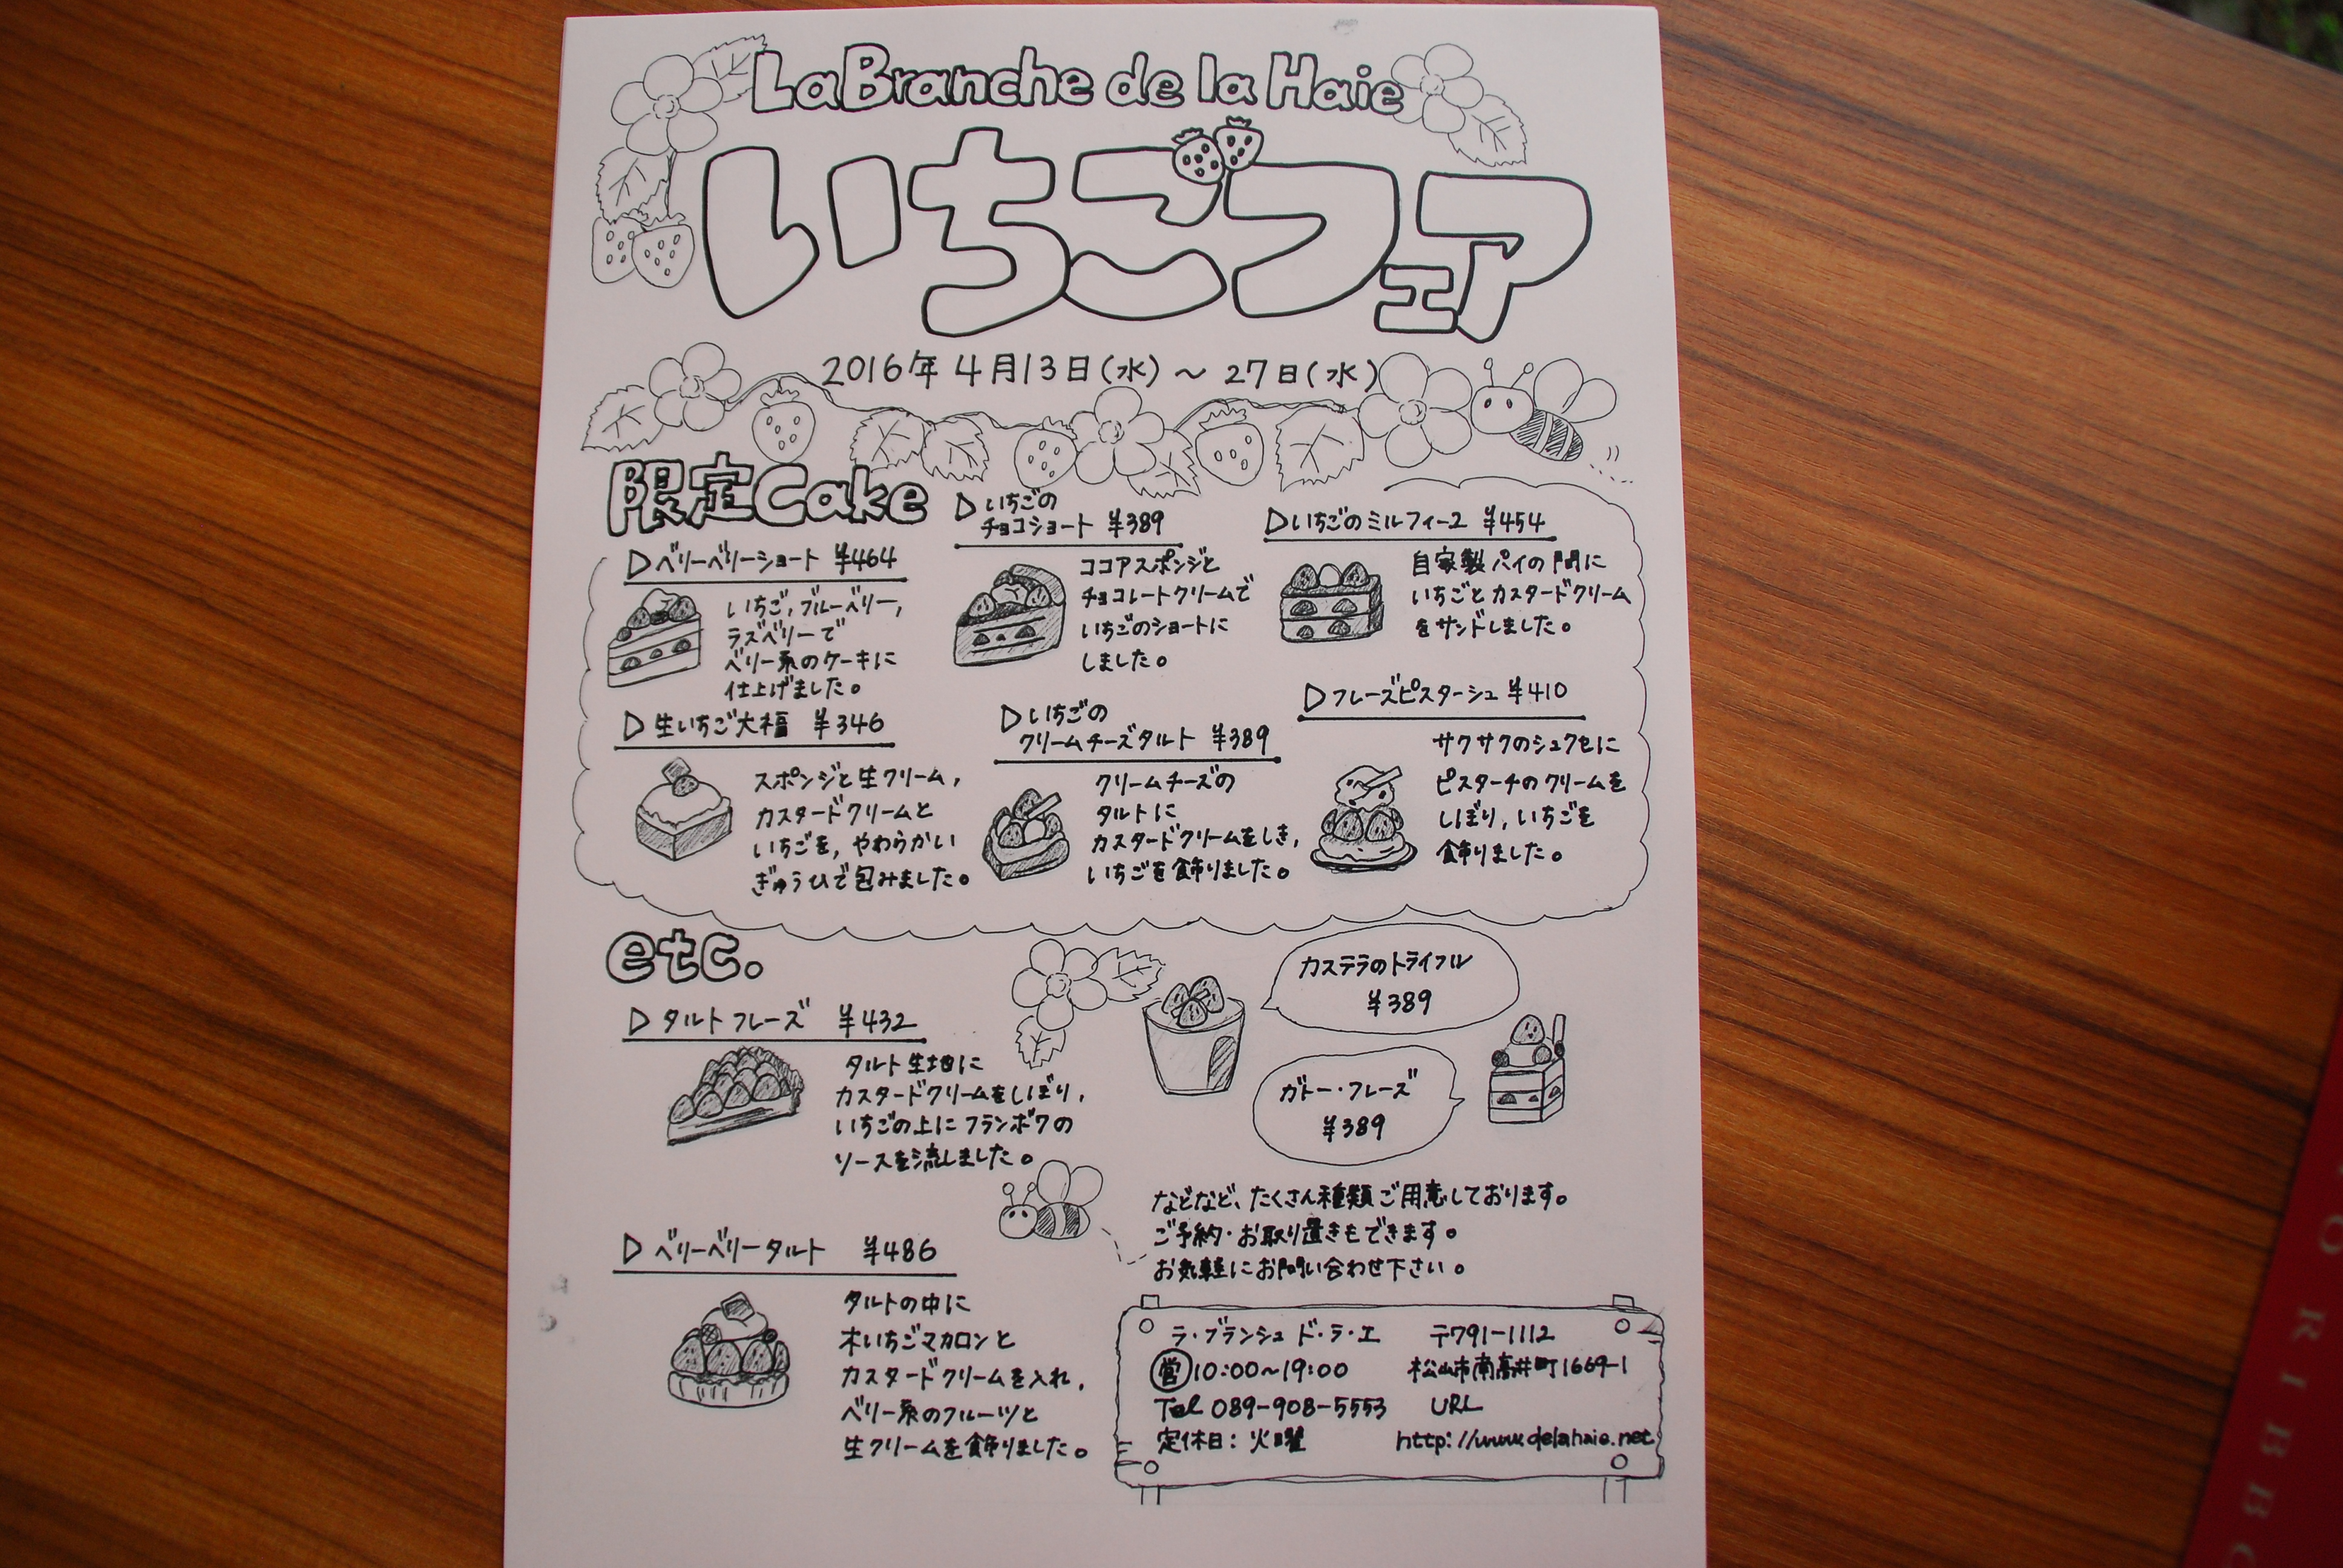 La Branche de la Haie
いちごフェア
2016年4月13日(水)～27日(水)
限定Cake
▷ベリーベリーショート ¥464
いちご,ブルーベリー,
ラズベリーで
ベリー系のケーキに
仕上げました。
▷いちごの
チョコショート ¥389
ココアスポンジと
チョコレートクリームで
いちごのショートに
しました。
▷いちごのミルフィーユ ¥454
自家製パイの間に
いちごとカスタードクリーム
をサンドしました。
▷生いちご大福 ¥346
スポンジと生クリーム,
カスタードクリームと
いちごを,やわらかい
ぎゅうひで包みました。
▷いちごの
クリームチーズタルト ¥389
クリームチーズの
タルトに
カスタードクリームをしき,
いちごを飾りました。
▷フレーズピスターシュ ¥410
サクサクのシュクセに
ピスターチのクリームを
しぼり,いちごを
飾りました。
etc.
▷タルトフレーズ ¥432
タルト生地に
カスタードクリームをしぼり,
いちごの上にフランボワの
ソースを流しました。
カステラのトライフル
¥389
ガトー・フレーズ
¥389
▷ベリーベリータルト ¥486
タルトの中に
木いちごマカロンと
カスタードクリームを入れ,
ベリー系のフルーツと
生クリームを飾りました。
などなど、たくさん種類ご用意しております。
ご予約・お取り置きもできます。
お気軽にお問い合わせ下さい。
ラ・ブランシュ ド・ラ・エ 〒791-1112
営10:00～19:00 松山市南高井町1669-1
Tel 089-908-5553 URL
定休日：火曜 http://www.delahaie.net
ORIBBO